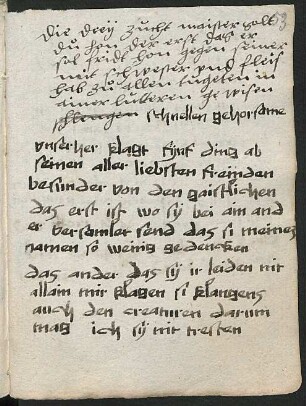 die dreÿ zucht maister solt
du hon der erst das er
sol fridt hon gegen seiner
mit schwester vnd fleis
hab zů allen tugeten in
ainer luteren gewisen
schnellen gehorsame
vnser her klagt fünf ding ab
seinen aller liebsten freinden
besunder von den gaistlichen
das erst ist wo sÿ bei ain and
er versamlet send das si meines
namen so weing gedencken
das ander das sÿ ir leiden nit
allain mir klagen si klangens
auch den creaturen darum
mag ich sÿ nit tresten